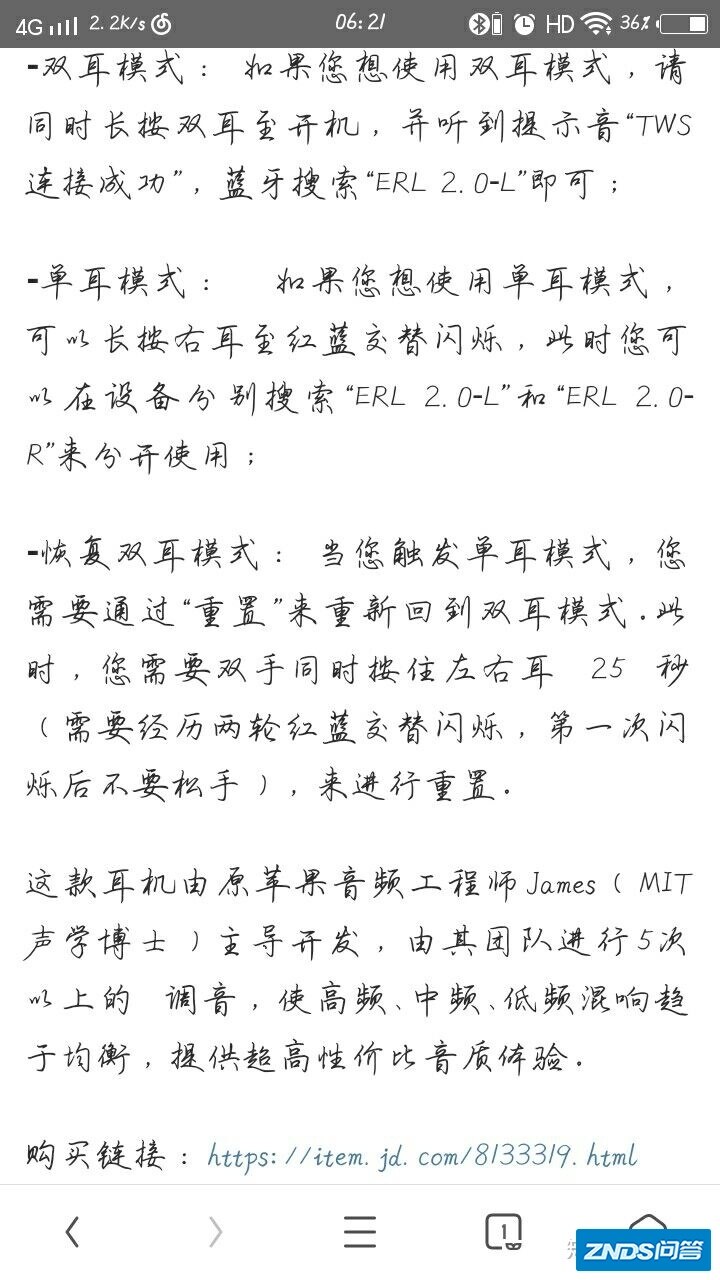 4G 2.2K/s 06:21 HD 36%
-双耳模式： 如果您想使用双耳模式，请
同时长按双耳至开机，并听到提示音“TWS
连接成功”，蓝牙搜索“ERL 2.0-L”即可；
-单耳模式： 如果您想使用单耳模式，
可以长按右耳至红蓝交替闪烁，此时您可
以在设备分别搜索“ERL 2.0-L”和“ERL 2.0-
R”来分开使用；
-恢复双耳模式： 当您触发单耳模式，您
需要通过“重置”来重新回到双耳模式.此
时，您需要双手同时按住左右耳 25 秒
（需要经历两轮红蓝交替闪烁，第一次闪
烁后不要松手），来进行重置.
这款耳机由原苹果音频工程师James（MIT
声学博士）主导开发，由其团队进行5次
以上的 调音，使高频、中频、低频混响趋
于均衡，提供超高性价比音质体验.
购买链接：https://item.jd.com/8133319.html
1
ZNDS问答